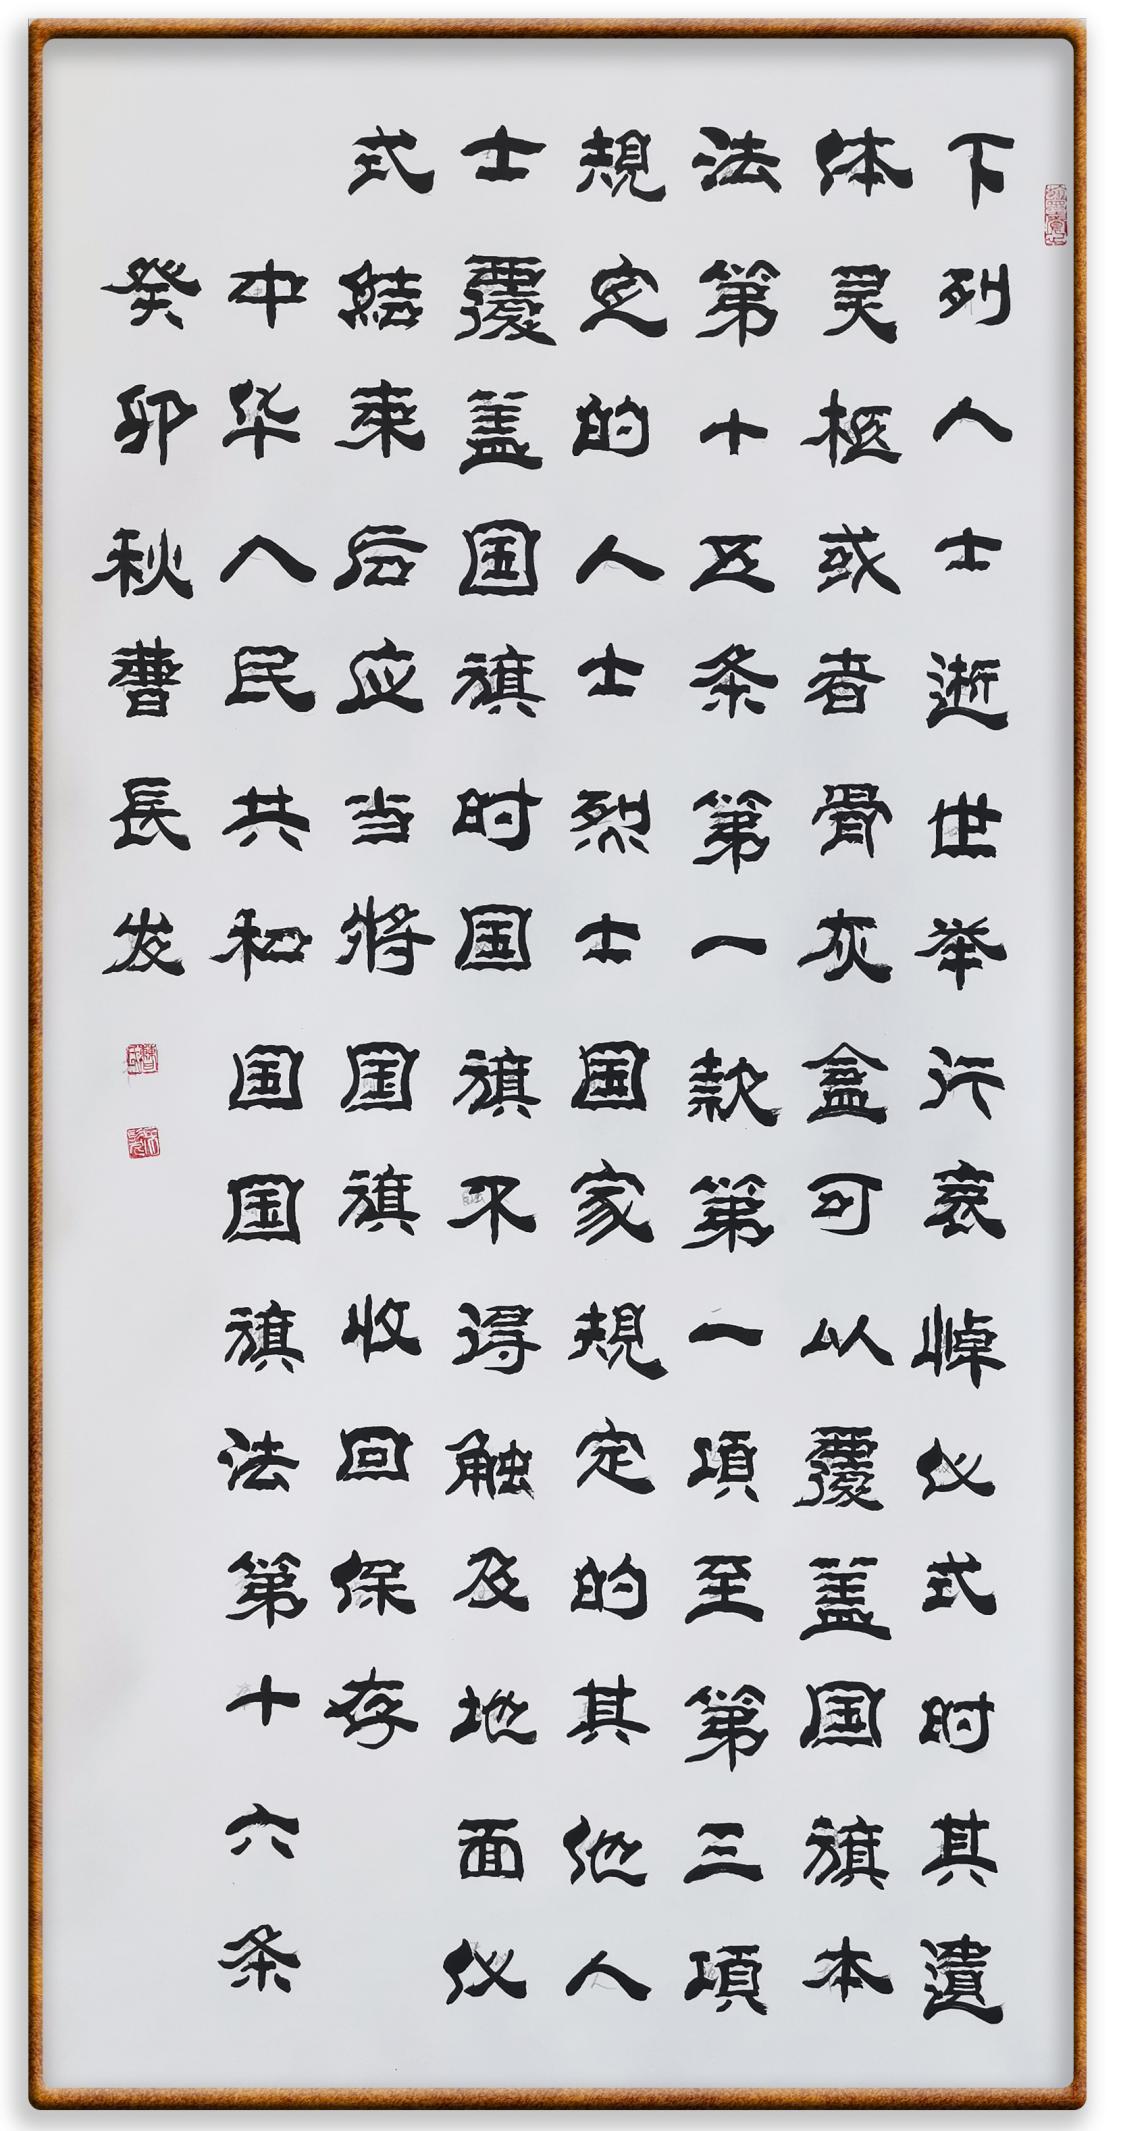 下列人士逝世举行哀悼仪式时其遺
体灵柩或者骨灰盒可以覆盖国旗本
法第十五条第一款第一項至第三項
規定的人士烈士国家規定的其他人
士覆盖国旗时国旗不得触及地面仪
式結束后应当将国旗收回保存
中华人民共和国国旗法第十六条
癸卯秋曹長发